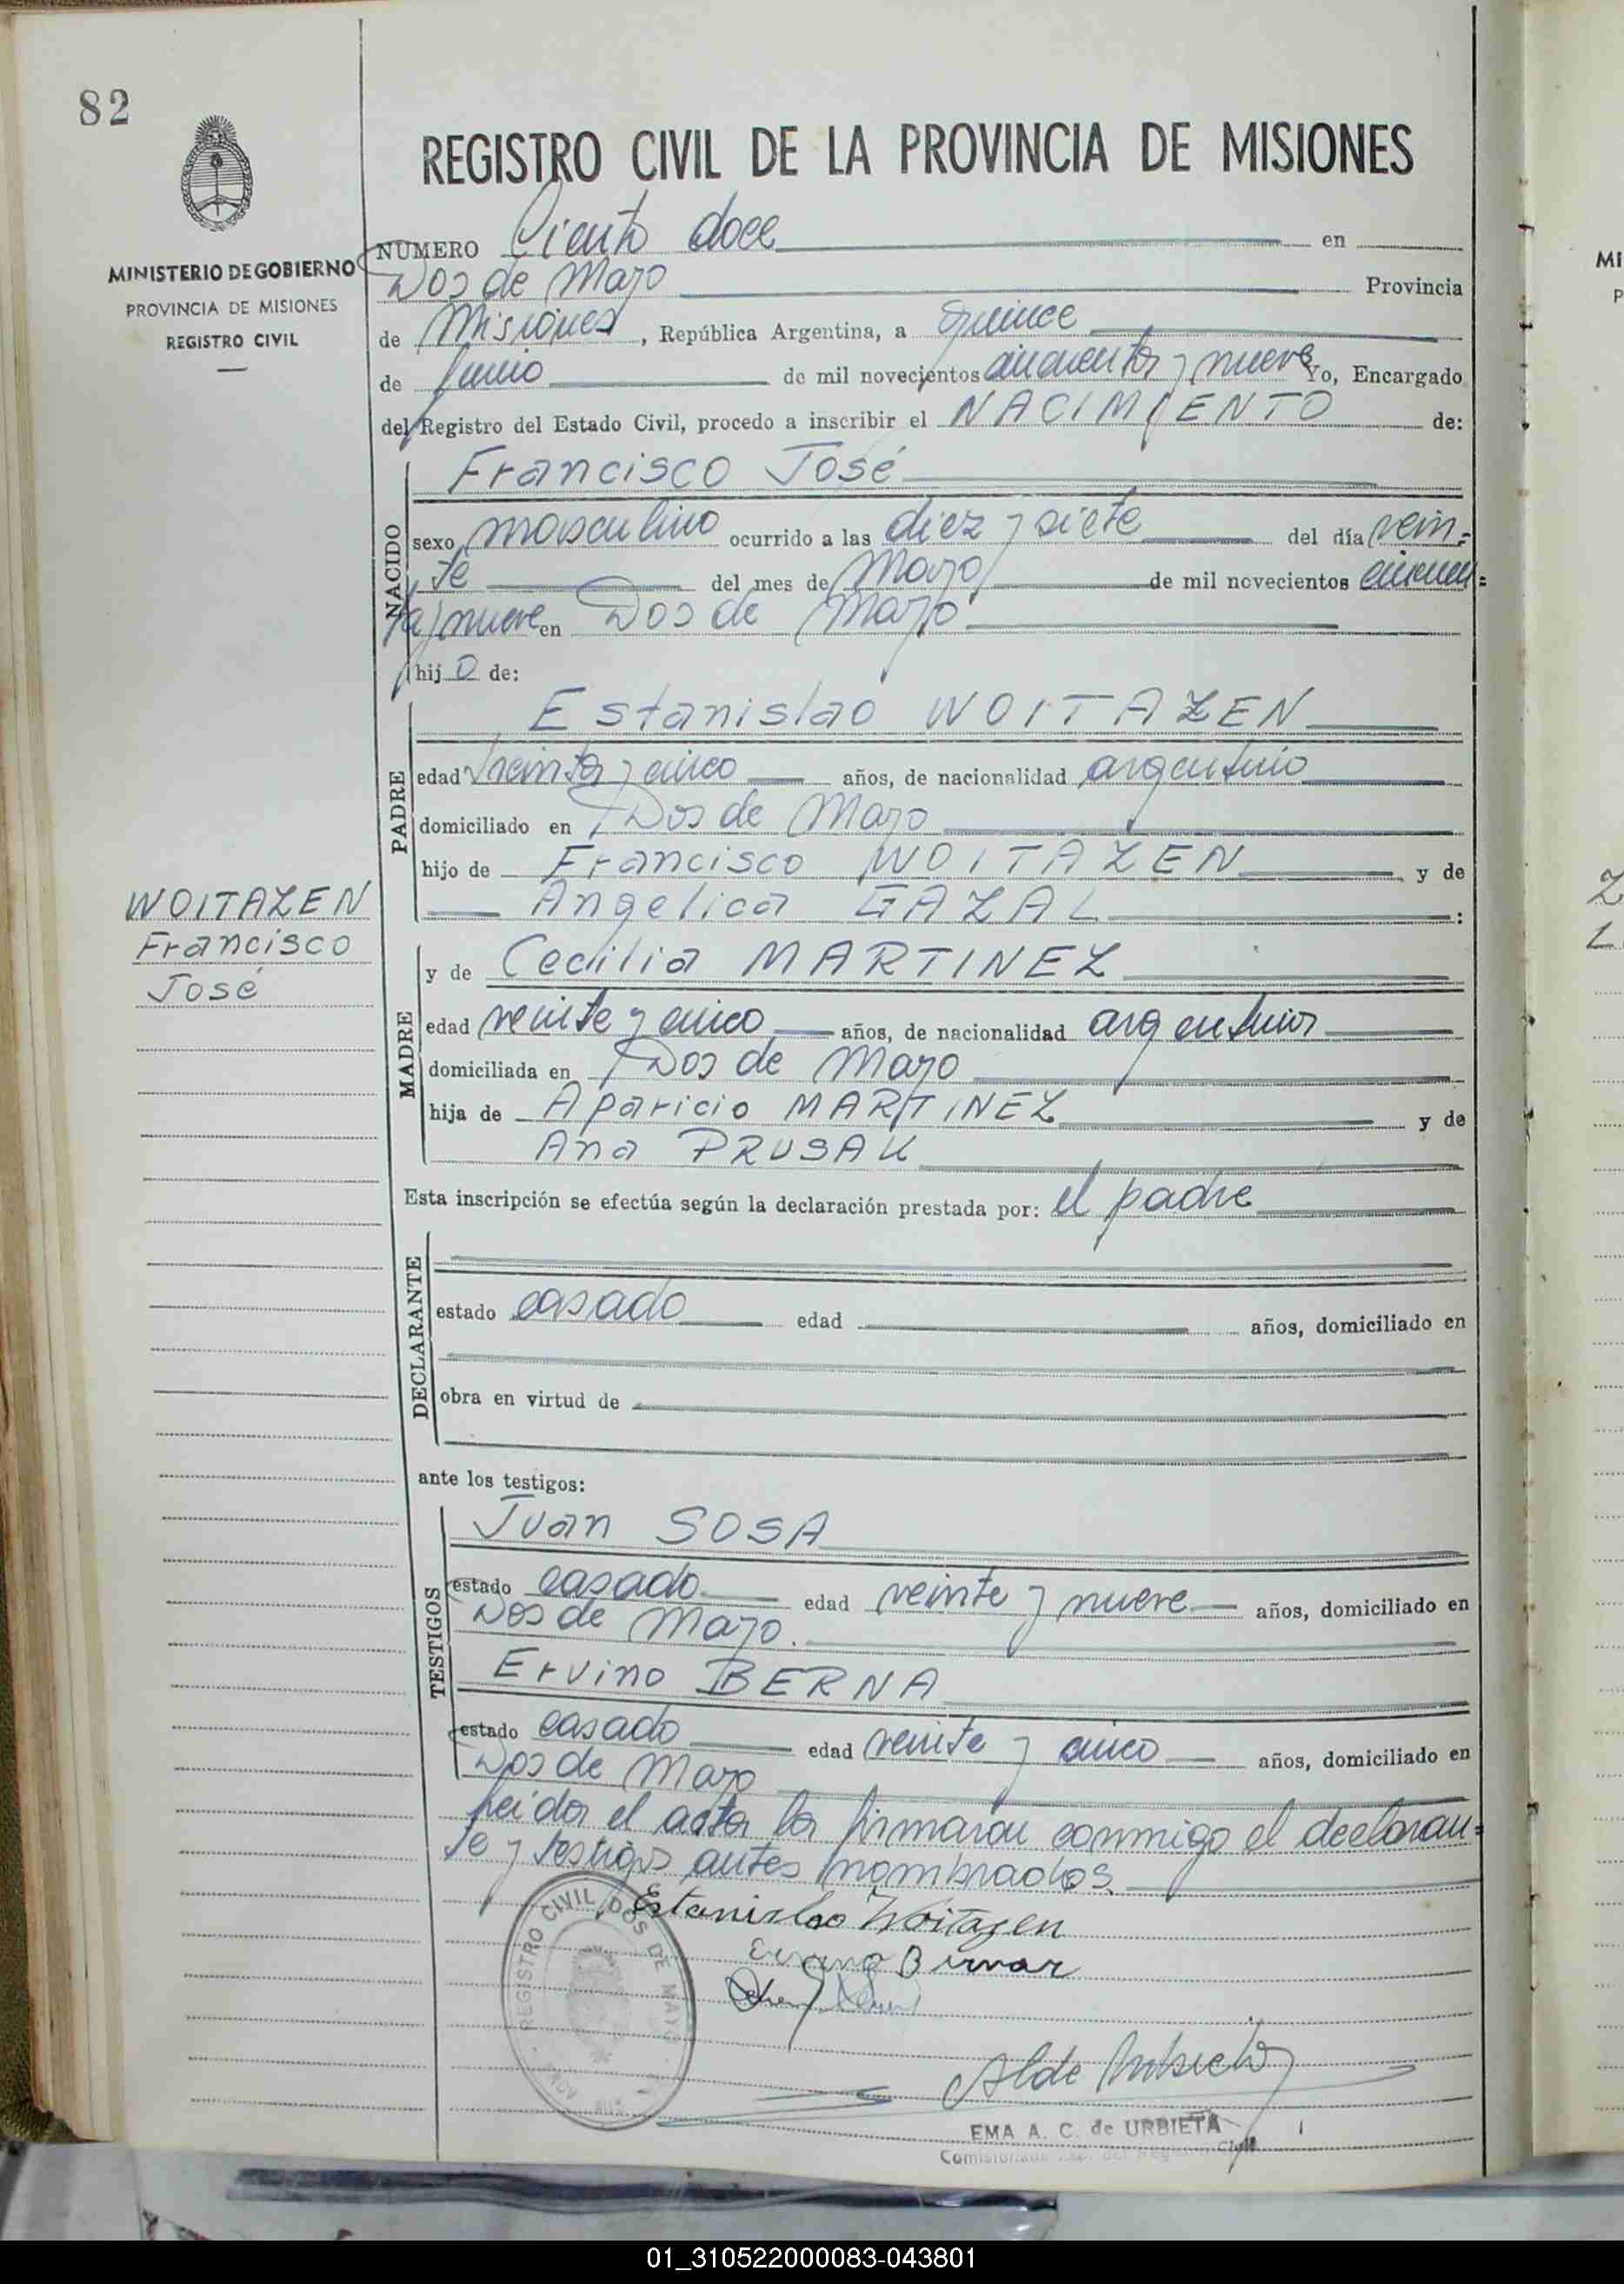 82
REGISTRO CIVIL DE LA PROVINCIA DE MISIONES
MINISTERIO DE GOBIERNO
PROVINCIA DE MISIONES
REGISTRO CIVIL
NUMERO Ciento doce en
Dos de Mayo Provincia
de Misiones, República Argentina, a quince
de Junio de mil novecientos cincuenta y nueve Yo, Encargado
del Registro del Estado Civil, procedo a inscribir el NACIMIENTO de:
NACIDO
Francisco José
sexo masculino ocurrido a las diez y siete del día vein=
te del mes de Mayo de mil novecientos cincuen=
ta y nueve en Dos de Mayo
hijo de:
PADRE
Estanislao WOITAZEN
edad treinta y cinco años, de nacionalidad argentino
domiciliado en Dos de Mayo
hijo de Francisco WOITAZEN y de
Angelica GAZAL:
WOITAZEN
Francisco
José
MADRE
y de Cecilia MARTINEZ
edad veinte y cinco años, de nacionalidad argentina
domiciliada en Dos de Mayo
hija de Aparicio MARTINEZ y de
Ana PRUSAK
Esta inscripción se efectúa según la declaración prestada por: el padre
DECLARANTE
estado casado edad años, domiciliado en
obra en virtud de
ante los testigos:
TESTIGOS
Juan SOSA
estado casado edad veinte y nueve años, domiciliado en
Dos de Mayo.
Ervino BERNA
estado casado edad veinte y cinco años, domiciliado en
Dos de Mayo
Leida el acta la firmaron conmigo el declaran=
te y testigos antes nombrados.
Estanislao Woitazen
REGISTRO CIVIL DOS DE MAYO
EMA A. C. de URBIETA
01_310522000083-043801